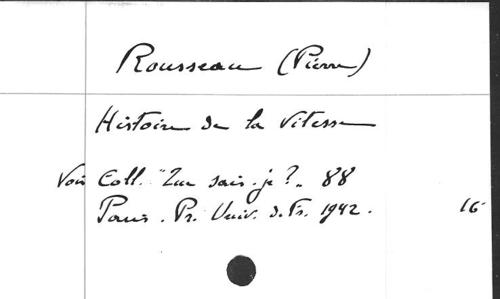 Rousseau (Pierre)
Histoire de la Vitesse
Voir Coll. "Que sais-je?" 88
Paris. Pr. Univ. d. Fr. 1942. 16